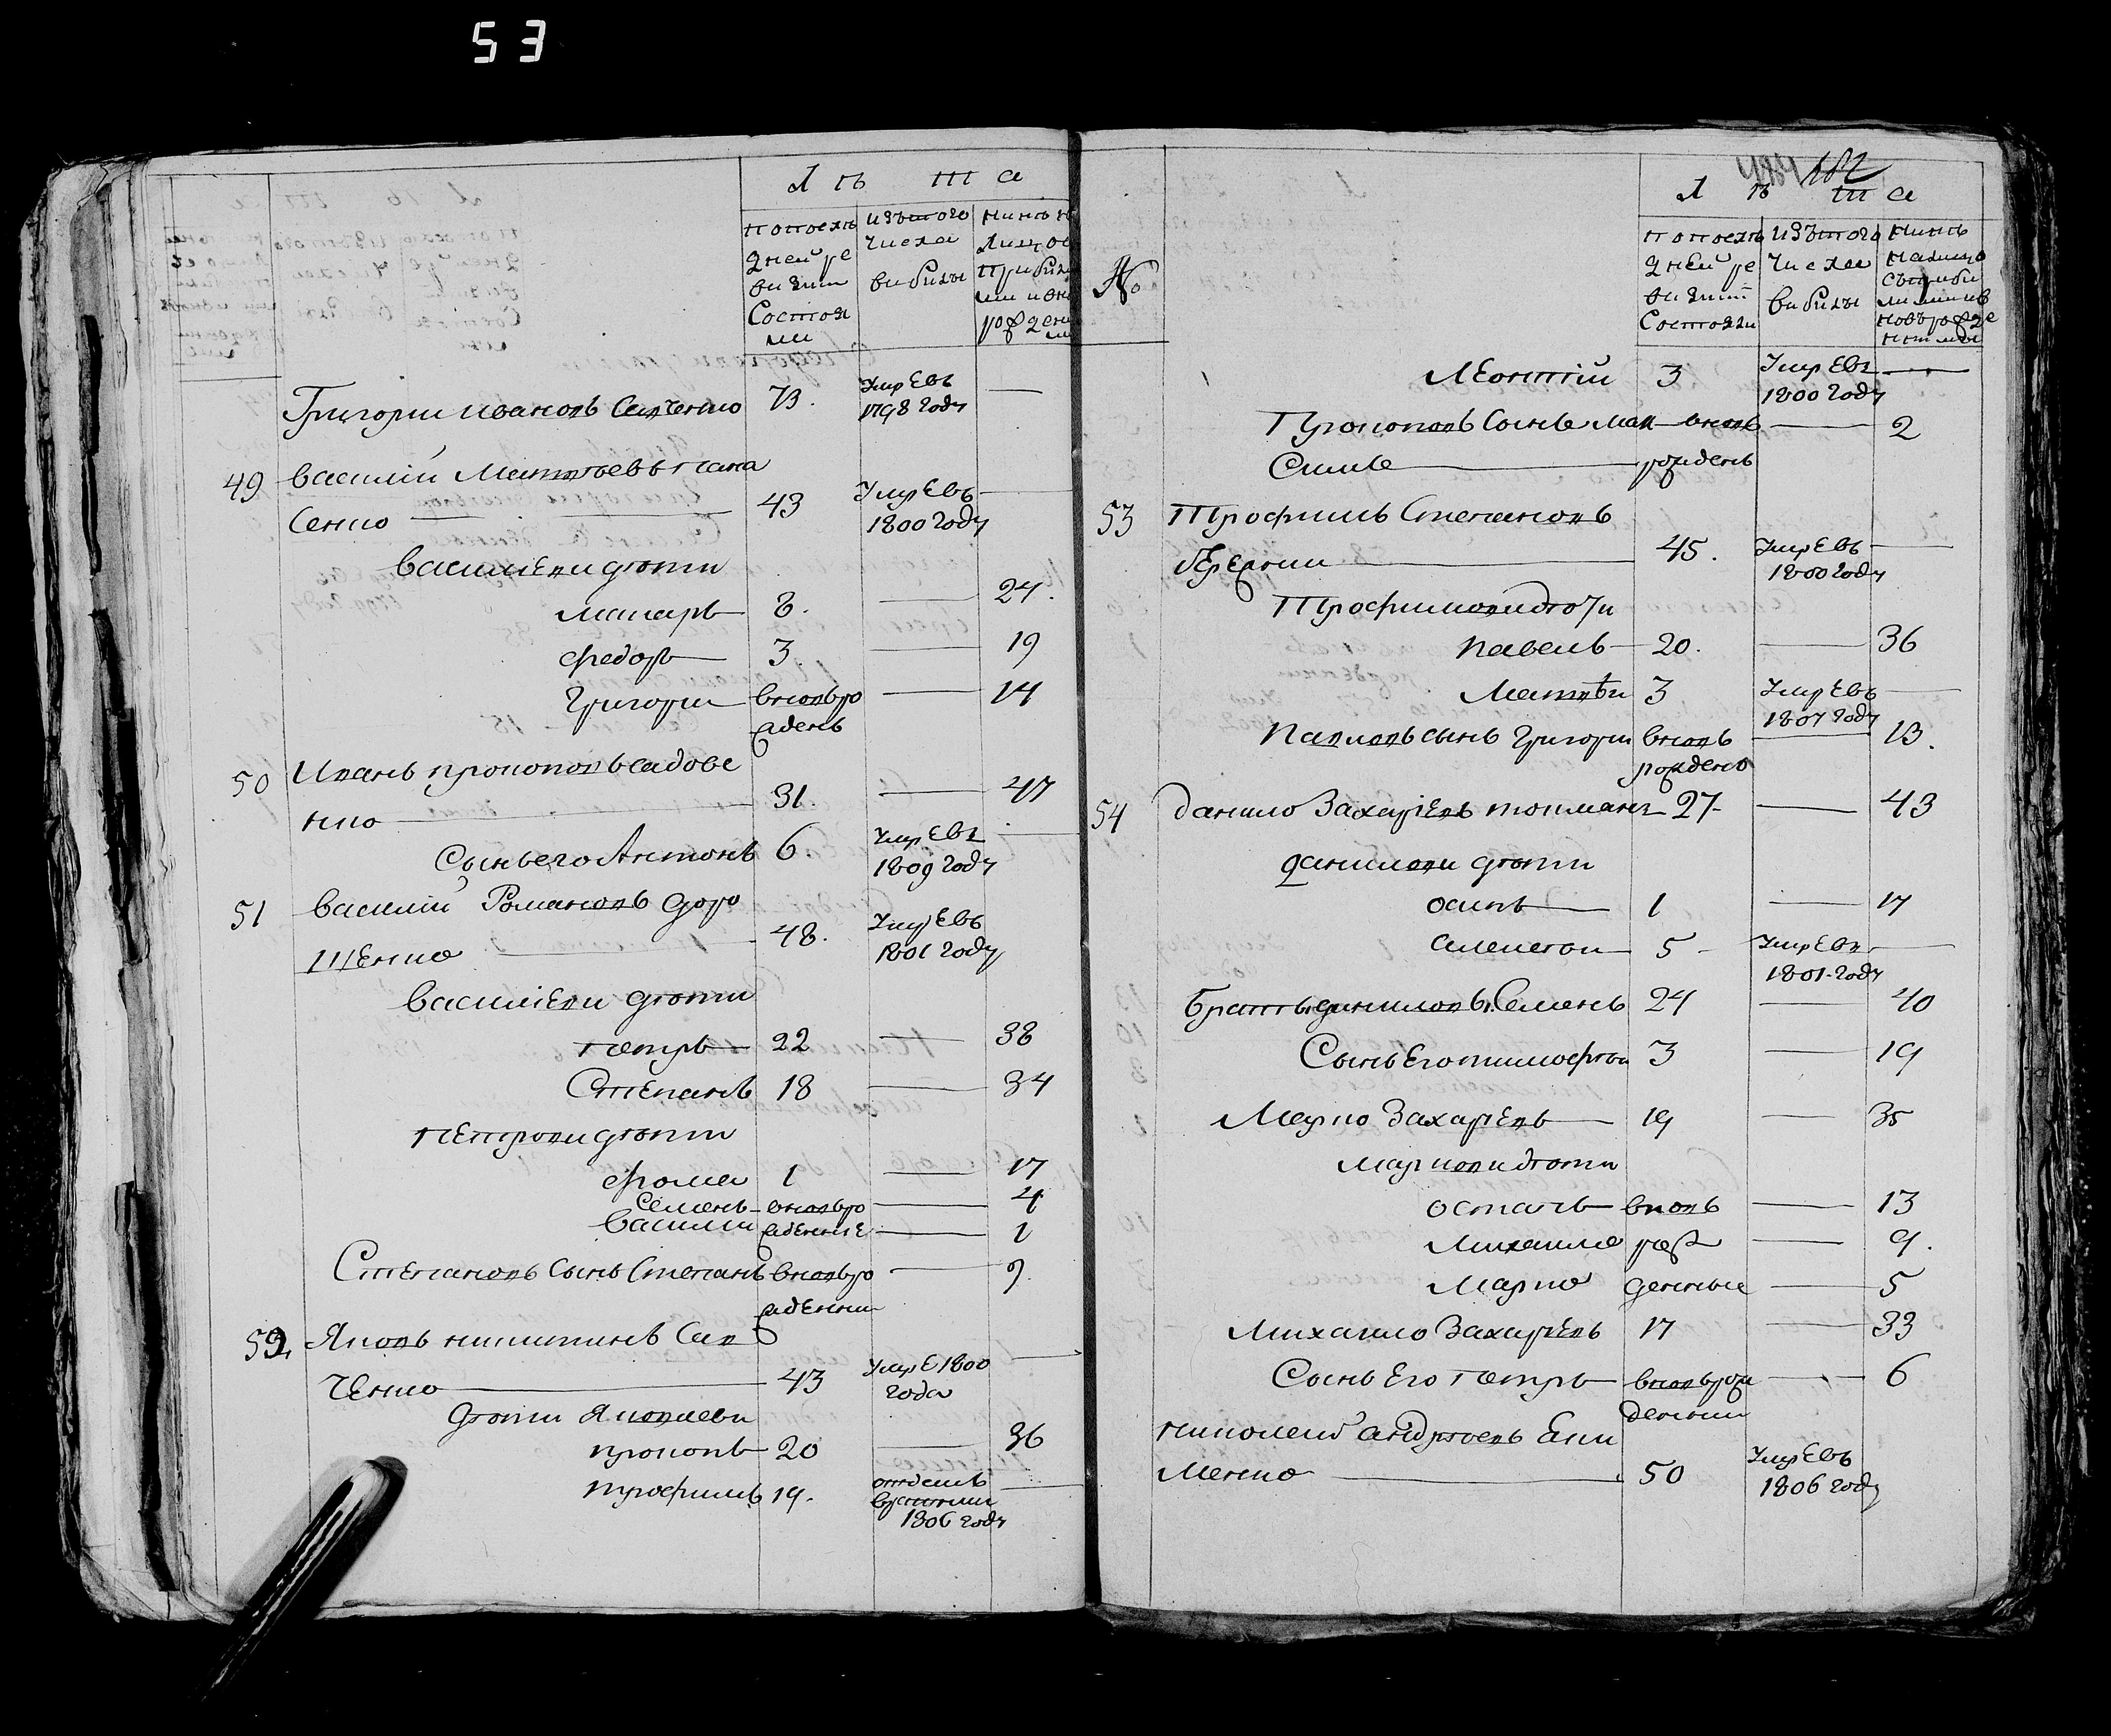 53
Лѣта
попослѣ
дней ре
визии
Состоя
ли
изътого
числа
выбилы
Григорий ивановъ Савченко 73. Умре въ
1798 году
49 василий Матвѣевъ пана
сенко 43 Умре въ
1800 году
василиеви дѣти
макаръ 8. 24.
федоръ 3 19
григори вновьро 14
жденъ
50 Иванъ прокоповъ садове
нко 31. 47
Сынъ его Антонъ 6. Умре въ
1809 году
51 василий Романовъ доро
шенко 48. Умре въ
1801 году
василиеви дѣти
петръ 22 38
Степанъ 18 34
петрови дѣти
фома 1 17
Семенъ вновьро 4
василии жденние 1
Степановъ сынъ Степанъ вновьро 9.
жденни
52 Яковъ никитинъ Сав
ченко 43 Умре 1800
года
дѣти Яковлеви
прокопъ 20 36
трофимъ 19. отдёнъ
1806 году
182
Лѣта
№
попослѣ
дней ре
визий
Состояли
изътого
числа
выбилы
нинѣ
Леонтий 3 Умре въ
1800 году
Прокоповъ сынъ мак вновь 2
симъ рожденъ
53 Трофимъ Степановъ
45. Умре въ
1800 году
Трофимови дѣти
павелъ 20. 36
Матвѣи 3 Умре въ
1807 году
Павловъ сынъ григори вновь 13.
рожденъ
54 данило Захариевъ токманъ 27 43
данилови дѣти
осипъ 1 17
алексѣи 5 Умре въ
1801 году
Братъ даниловъ Семенъ 24 40
Сынъ Его тимофѣи 3 19
Марко Захариевъ 19 35
маркови дѣти
остапъ вновь 13
михаило рож 9.
Марко денные 5
михаило Захариевъ 17 33
Сынъ Его петръ вновьрож 6
денныи
николай андрѣевъ Яки
менко 50 Умре въ
1806 году